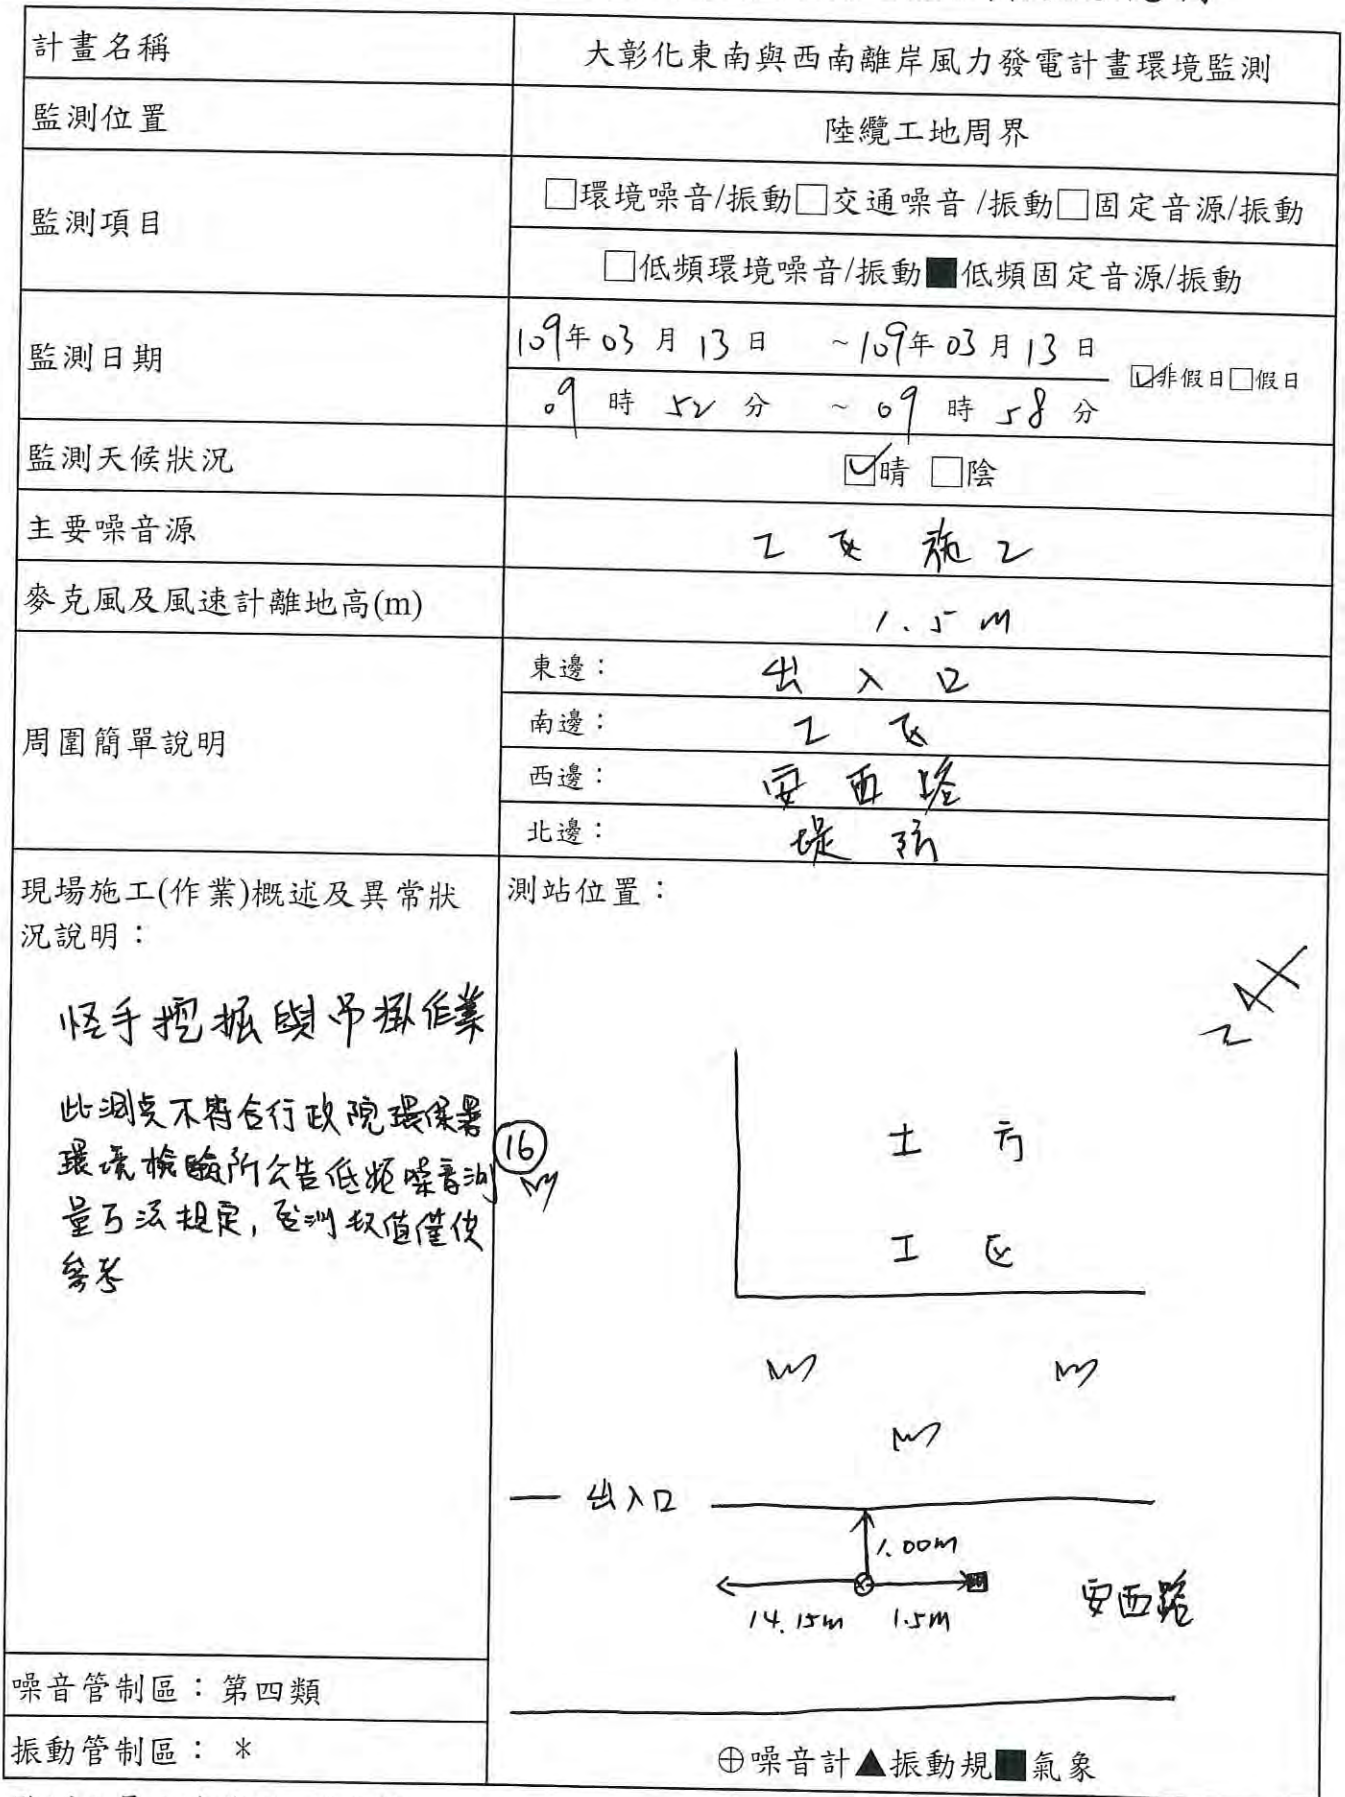 計畫名稱 大彰化東南與西南離岸風力發電計畫環境監測
監測位置 陸纜工地周界
監測項目 □環境噪音/振動□交通噪音/振動□固定音源/振動
□低頻環境噪音/振動■低頻固定音源/振動
監測日期 109年03月13日 ~109年03月13日 ☑非假日□假日
09時52分 ~09時58分
監測天候狀況 ☑晴 □陰
主要噪音源 工區施工
麥克風及風速計離地高(m) 1.5m
周圍簡單說明
東邊：出入口
南邊：工區
西邊：安西路
北邊：堤防
現場施工(作業)概述及異常狀
況說明：
怪手挖掘與吊掛作業
此測點不符合行政院環保署
環境檢驗所公告低頻噪音測
量方法規定，監測數值僅供
參考
噪音管制區：第四類
振動管制區： *
測站位置：
16
土方
工區
出入口
1.00m
14.15m 1.5m
安西路
⊕噪音計▲振動規■氣象